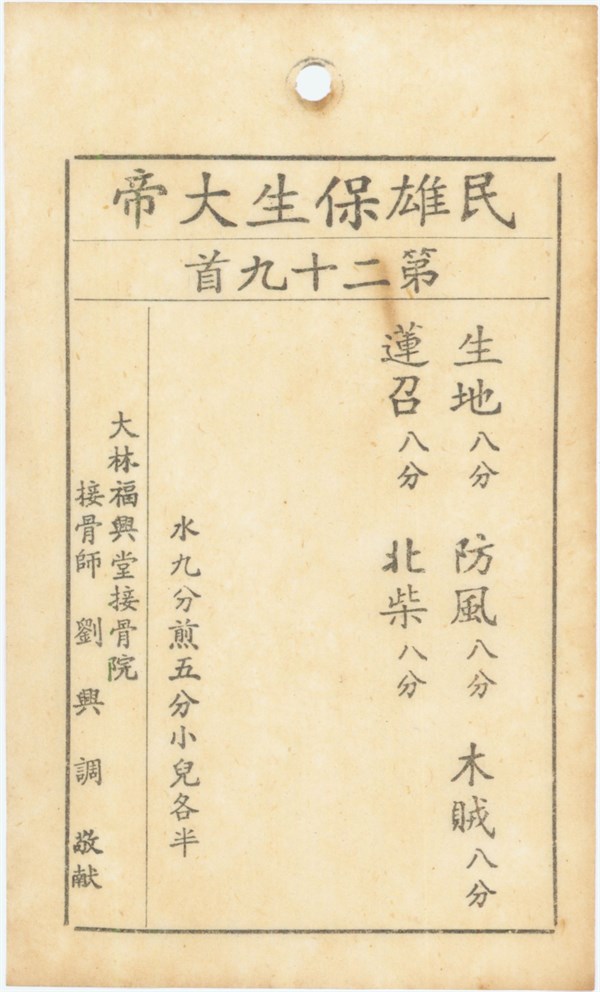 民雄保生大帝
第二十九首
生地八分 防風八分 木賊八分
蓮召八分 北柴八分
水九分煎五分小兒各半
大林福興堂接骨院
接骨師 劉興調 敬献